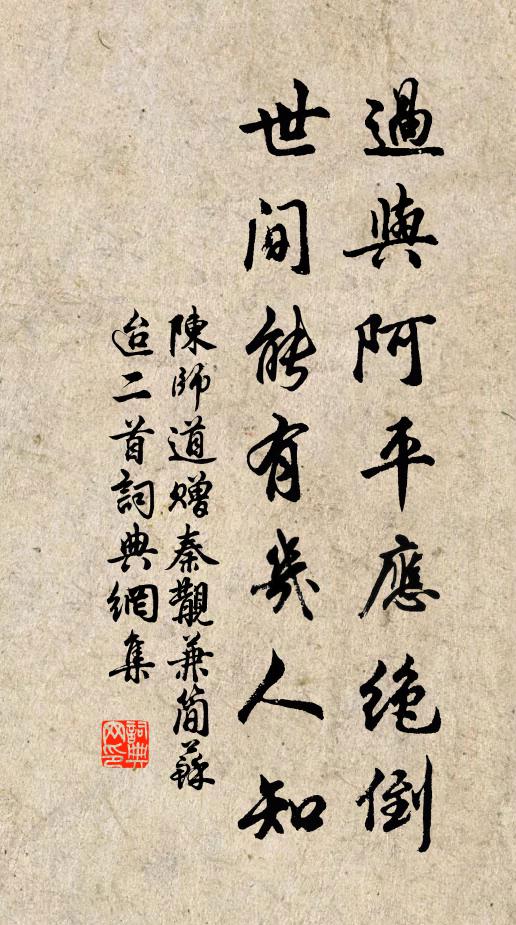 過與阿平應絕倒
世間能有幾人知
陳師道贈秦觀兼簡蘇
迨二首詞典網集
詞典
网印